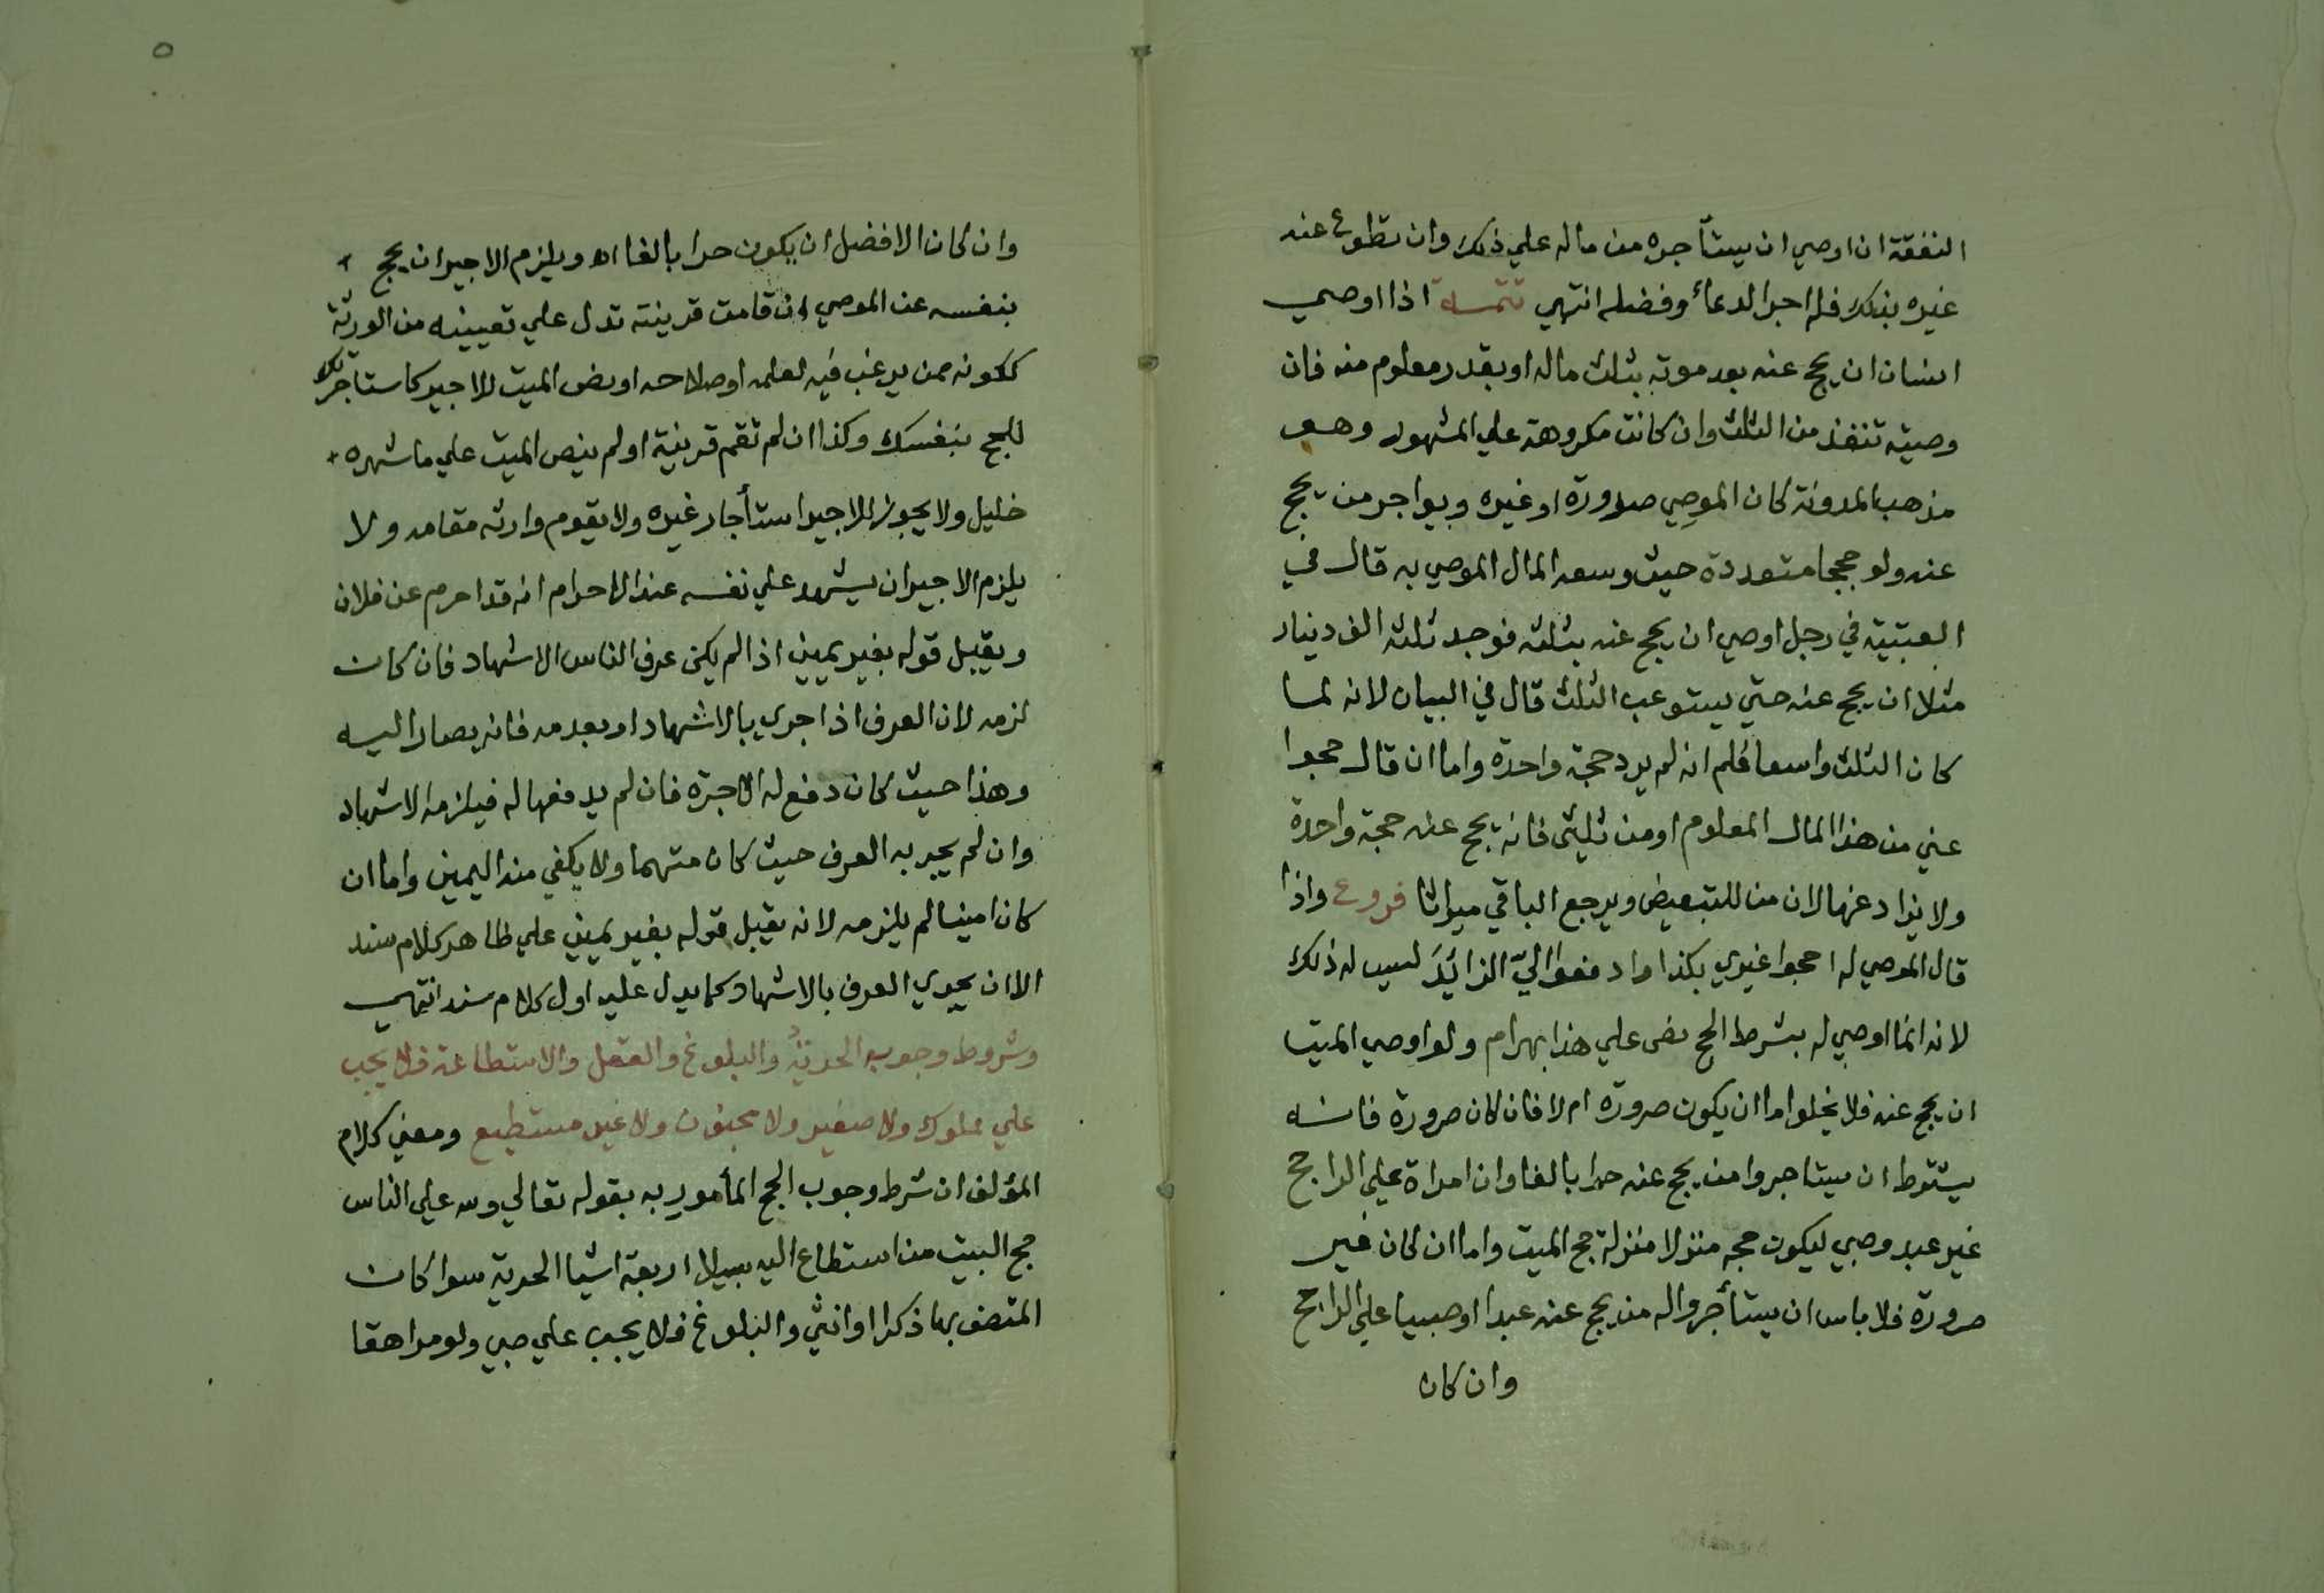 النفقة ان اوصي ان يستأجره من ماله علي ذلك وان تطوع عنه
غيره بذلك فله اجر الدعاء وفضله انتهي تتمة اذا اوصي
انسان ان يحج عنه بعد موته بثلث ماله او بقدر معلوم منه فان
وصيته تنفذ من الثلث وان كانت مكروهة علي المشهور وهو
مذهب المدونة كان الموصي صرورة او غيره ويواجر من يحج
عنه ولو حججا متعددة حيث وسعه المال الموصي به قال في
العتبية في رجل اوصي ان يحج عنه بثلثه فوجد ثلثه الف دينار
مثلا ان يحج عنه حتي يستوعب الثلث قال في البيان لانه لما
كان الثلث واسعا علم انه لم يرد حجة واحدة واما ان قال حجوا
عني من هذا المال المعلوم او من ثلثي فانه يحج عنه حجة واحدة
ولا يزاد عنها لان من للتبعيض ويرجع الباقي ميراثا فروع واذا
قال الموصي له احجوا غيري بكذا وادفعوا اليّ الزائد ليس له ذلك
لانه انما اوصي له بشرط الحج نص علي هذا بهرام ولو اوصي الميت
ان يحج عنه فلا يخلوا اما ان يكون صرورة ام لا فان كان صرورة فانه
يشترط ان يستاجروا من يحج عنه حرا بالغا وان امراة علي الراجح
غير عبد وصبي ليكون حجه منزلا منزلة حج الميت واما ان كان غير
صرورة فلا باس ان يستأجروا له من يحج عنه عبدا او صبيا علي الراجح
وان كان
٥
وان كان الافضل ان يكون حرا بالغا اه ويلزم الاجير ان يحج
بنفسه عن الموصي ان قامت قرينة تدل علي تعيينه من الورثة
ككونه ممن يرغب فيه لعلمه او صلاحه او نص الميت للاجير كاستاجرتك
للحج بنفسك وكذا ان لم تقم قرينة او لم ينص الميت علي ما شهره
خليل ولا يجوز للاجير استأجار غيره ولا يقوم وارثه مقامه ولا
يلزم الاجير ان يشهد علي نفسه عند الاحرام انه قد احرم عن فلان
ويقبل قوله بغير يمين اذا لم يكن عرف الناس الاشهاد فان كان
لزمه لان العرف اذا جري بالاشهاد او بعدمه فانه يصار اليه
وهذا حيث كان دفع له الاجرة فان لم يدفعها له فيلزمه الاشهاد
وان لم يجر به العرف حيث كان متهما ولا يكفي منه اليمين واما ان
كان امينا لم يلزمه لانه يقبل قوله بغير يمين علي ظاهر كلام سند
الا ان يجري العرف بالاشهاد كما يدل عليه اول كلام سند انتهي
وشروط وجوبه الحرية والبلوغ والعقل والاستطاعة فلا يجب
علي مملوك ولا صغير ولا مجنون ولا غير مستطيع ومعني كلام
المؤلف ان شرط وجوب الحج المأمور به بقوله تعالي ولله علي الناس
حج البيت من استطاع اليه سبيلا اربعة اشيا الحرية سوا كان
المتصف بها ذكرا او انثي والبلوغ فلا يجب علي صبي ولو مراهقا